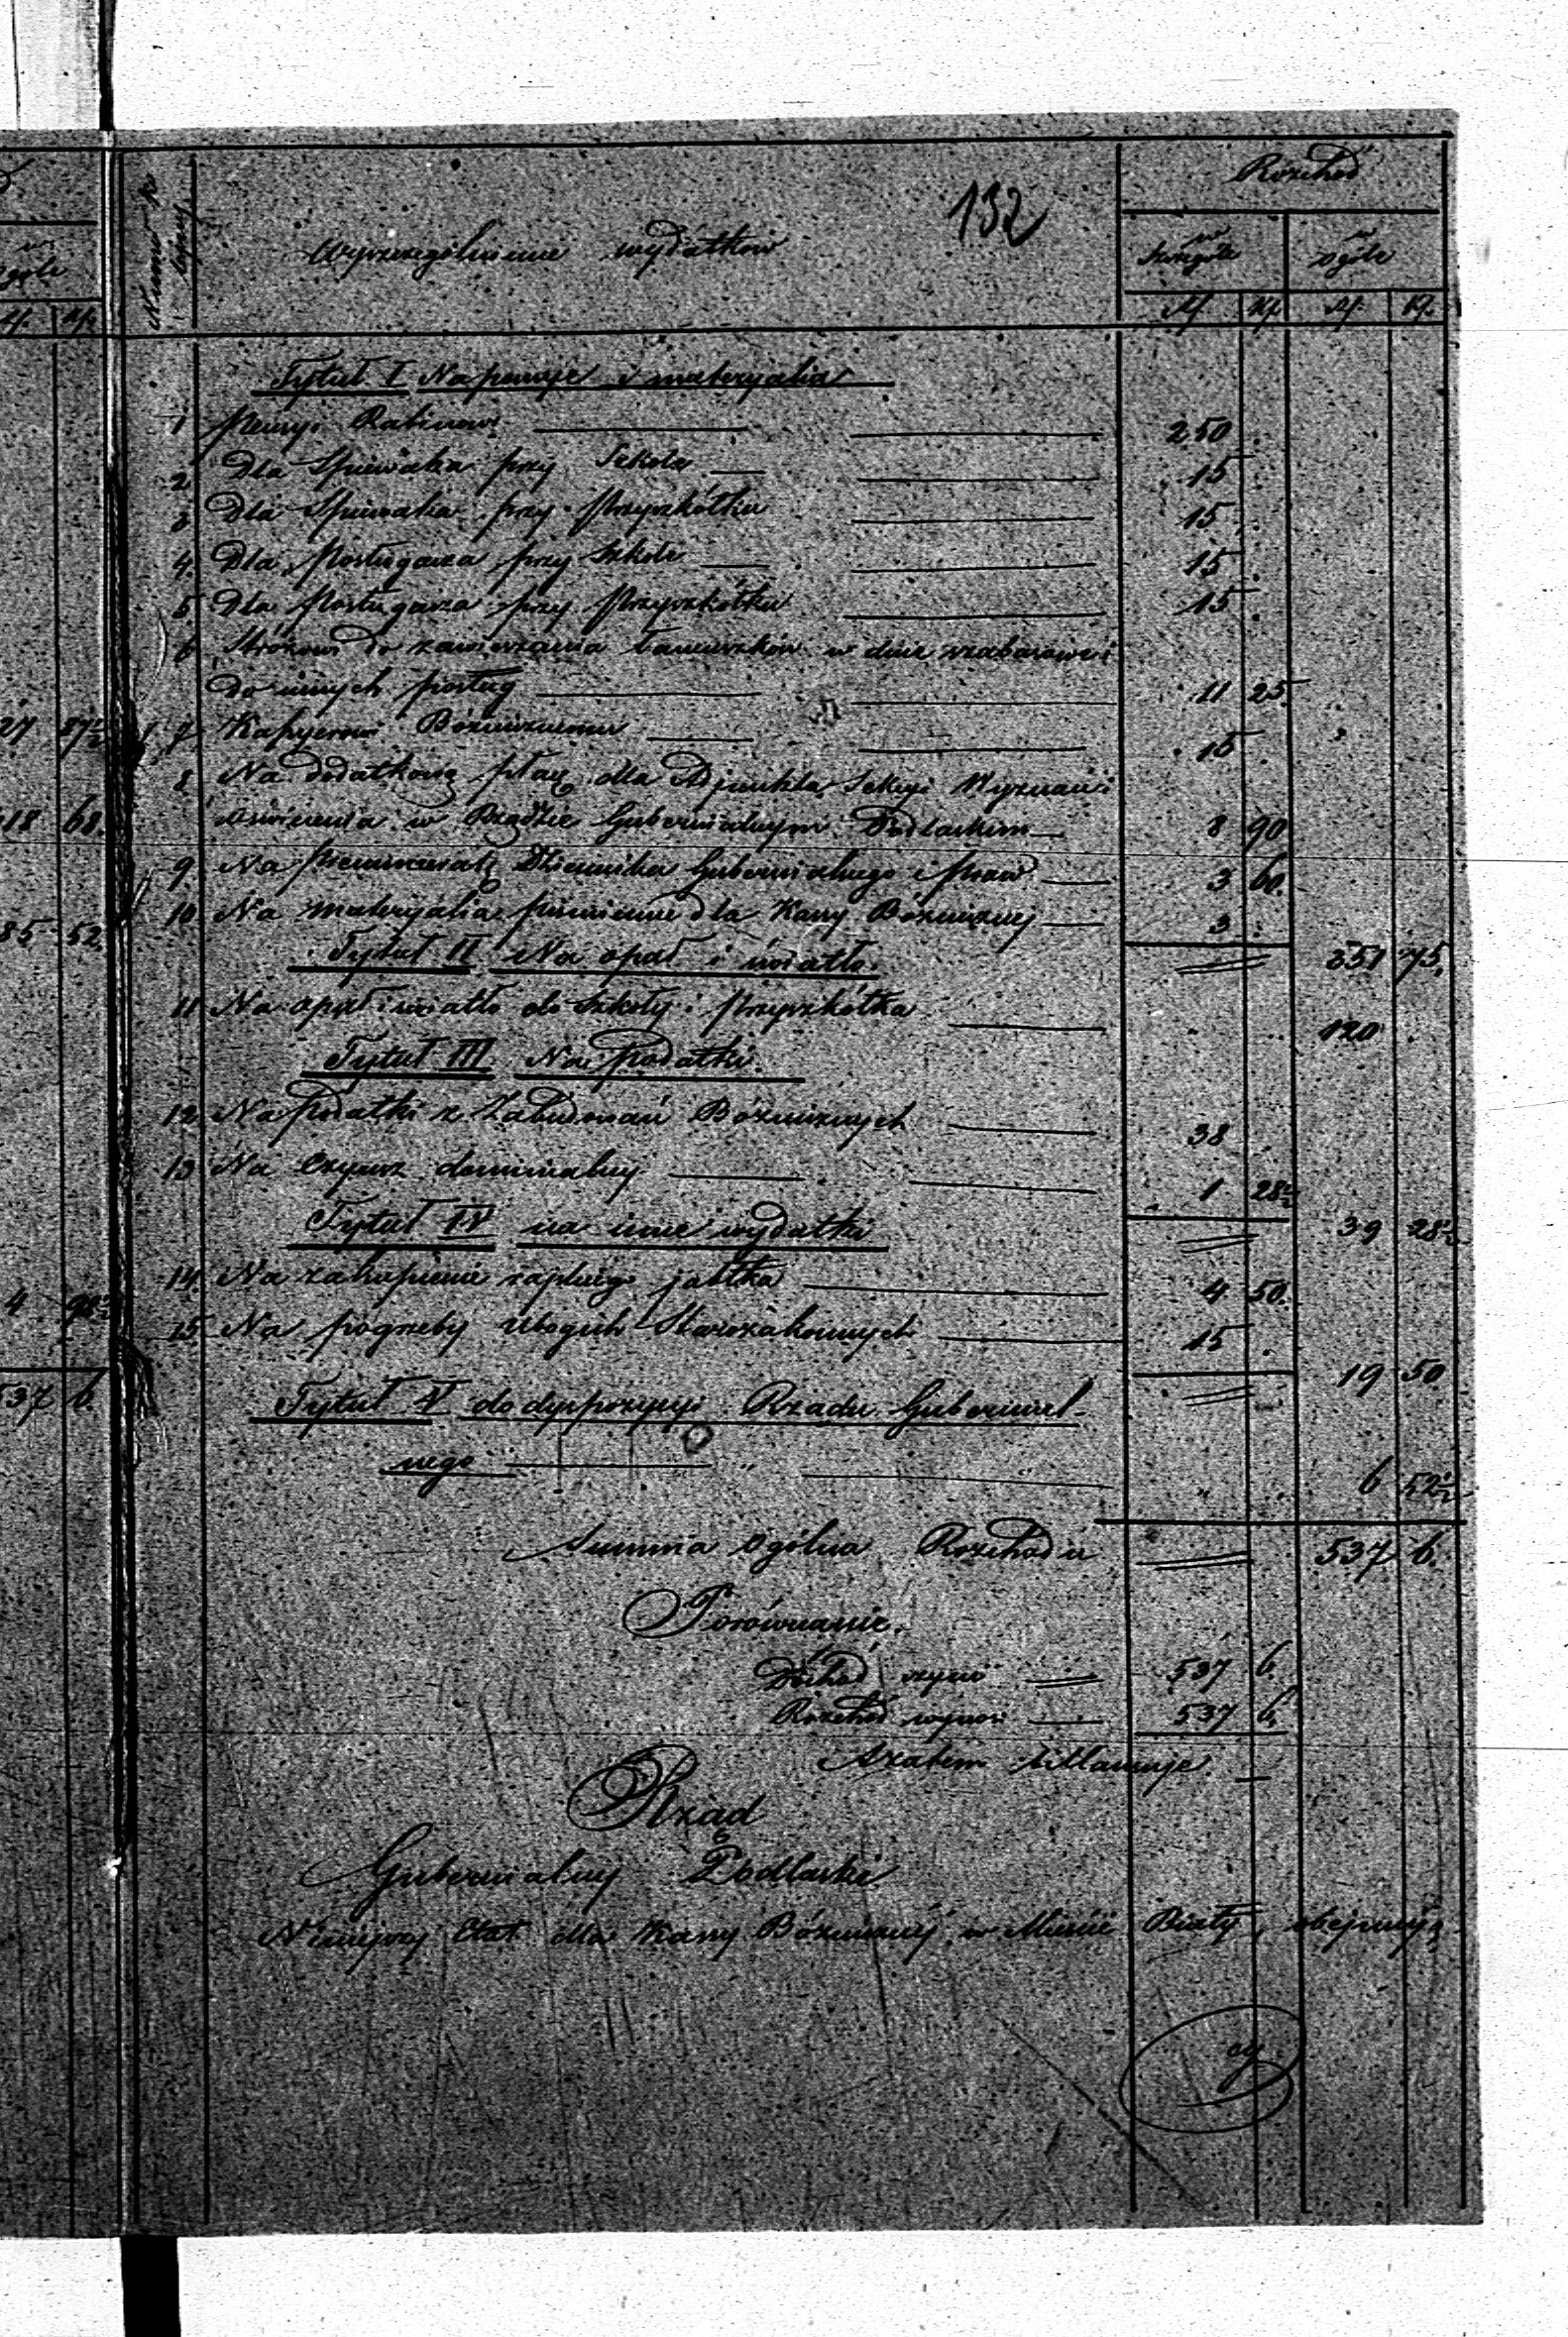 132
Rozchód
Numer
Wyszczególnienie wydatków
w szczególe
w ogóle
Rs. Kp. Rs. Kp.
Tytuł I Na pensye i materyalia
1 Pensyi Rabinowi 250
2 Dla Spiewaka przy Szkole 15
3 Dla Spiewaka przy Przyszkółku 15
4. Dla Posługacza przy Szkole 15
5. Dla Posługacza przy Przyszkółku 15
6 Stróżowi do zawieszania łańcuszków w dnie szabasowe i
do innych posług 11 25
7 Kassyerowi Bóżniczemu 15
8 Na dodatkową płacę dla Adjunkta Sekcyi Wyznań i
Oświecenia w Rządzie Gubernialnym Podlaskim 8 90
9. Na prenumeratę Dziennika Gubernialnego i Praw 3 60
10. Na materyalia piśmienne dla Kassy Bóżniczej 3
351 75.
Tytuł II Na opał i światło.
11 Na opał i światło do Szkoły i Przyszkółka 120
Tytuł III Na podatki.
12 Na podatki z Zabudowań Bóżniczych 38
13 Na Czynsz dominialny 1 28½
39 28½
Tytuł IV na inne wydatki
14. Na zakupienie rajskiego jabłka 4 50.
15 Na pogrzeby ubogich Starozakonnych 15
19 50
Tytuł V do dyspozycyi Rządu Gubernial-
nego 6 52½
Summa ogólna Rozchodu 537 6.
Porównanie.
Dochód czyni 537 6.
Rozchód wynosi 537 6.
A zatem bilansuje.
Rząd
Gubernialny Podlaski
Niniejszy Etat dla Kassy Bóżniczej w Mieście Biały, obejmują-
cy
27 87½
418 68.
85 52.
4 98½
537 6.